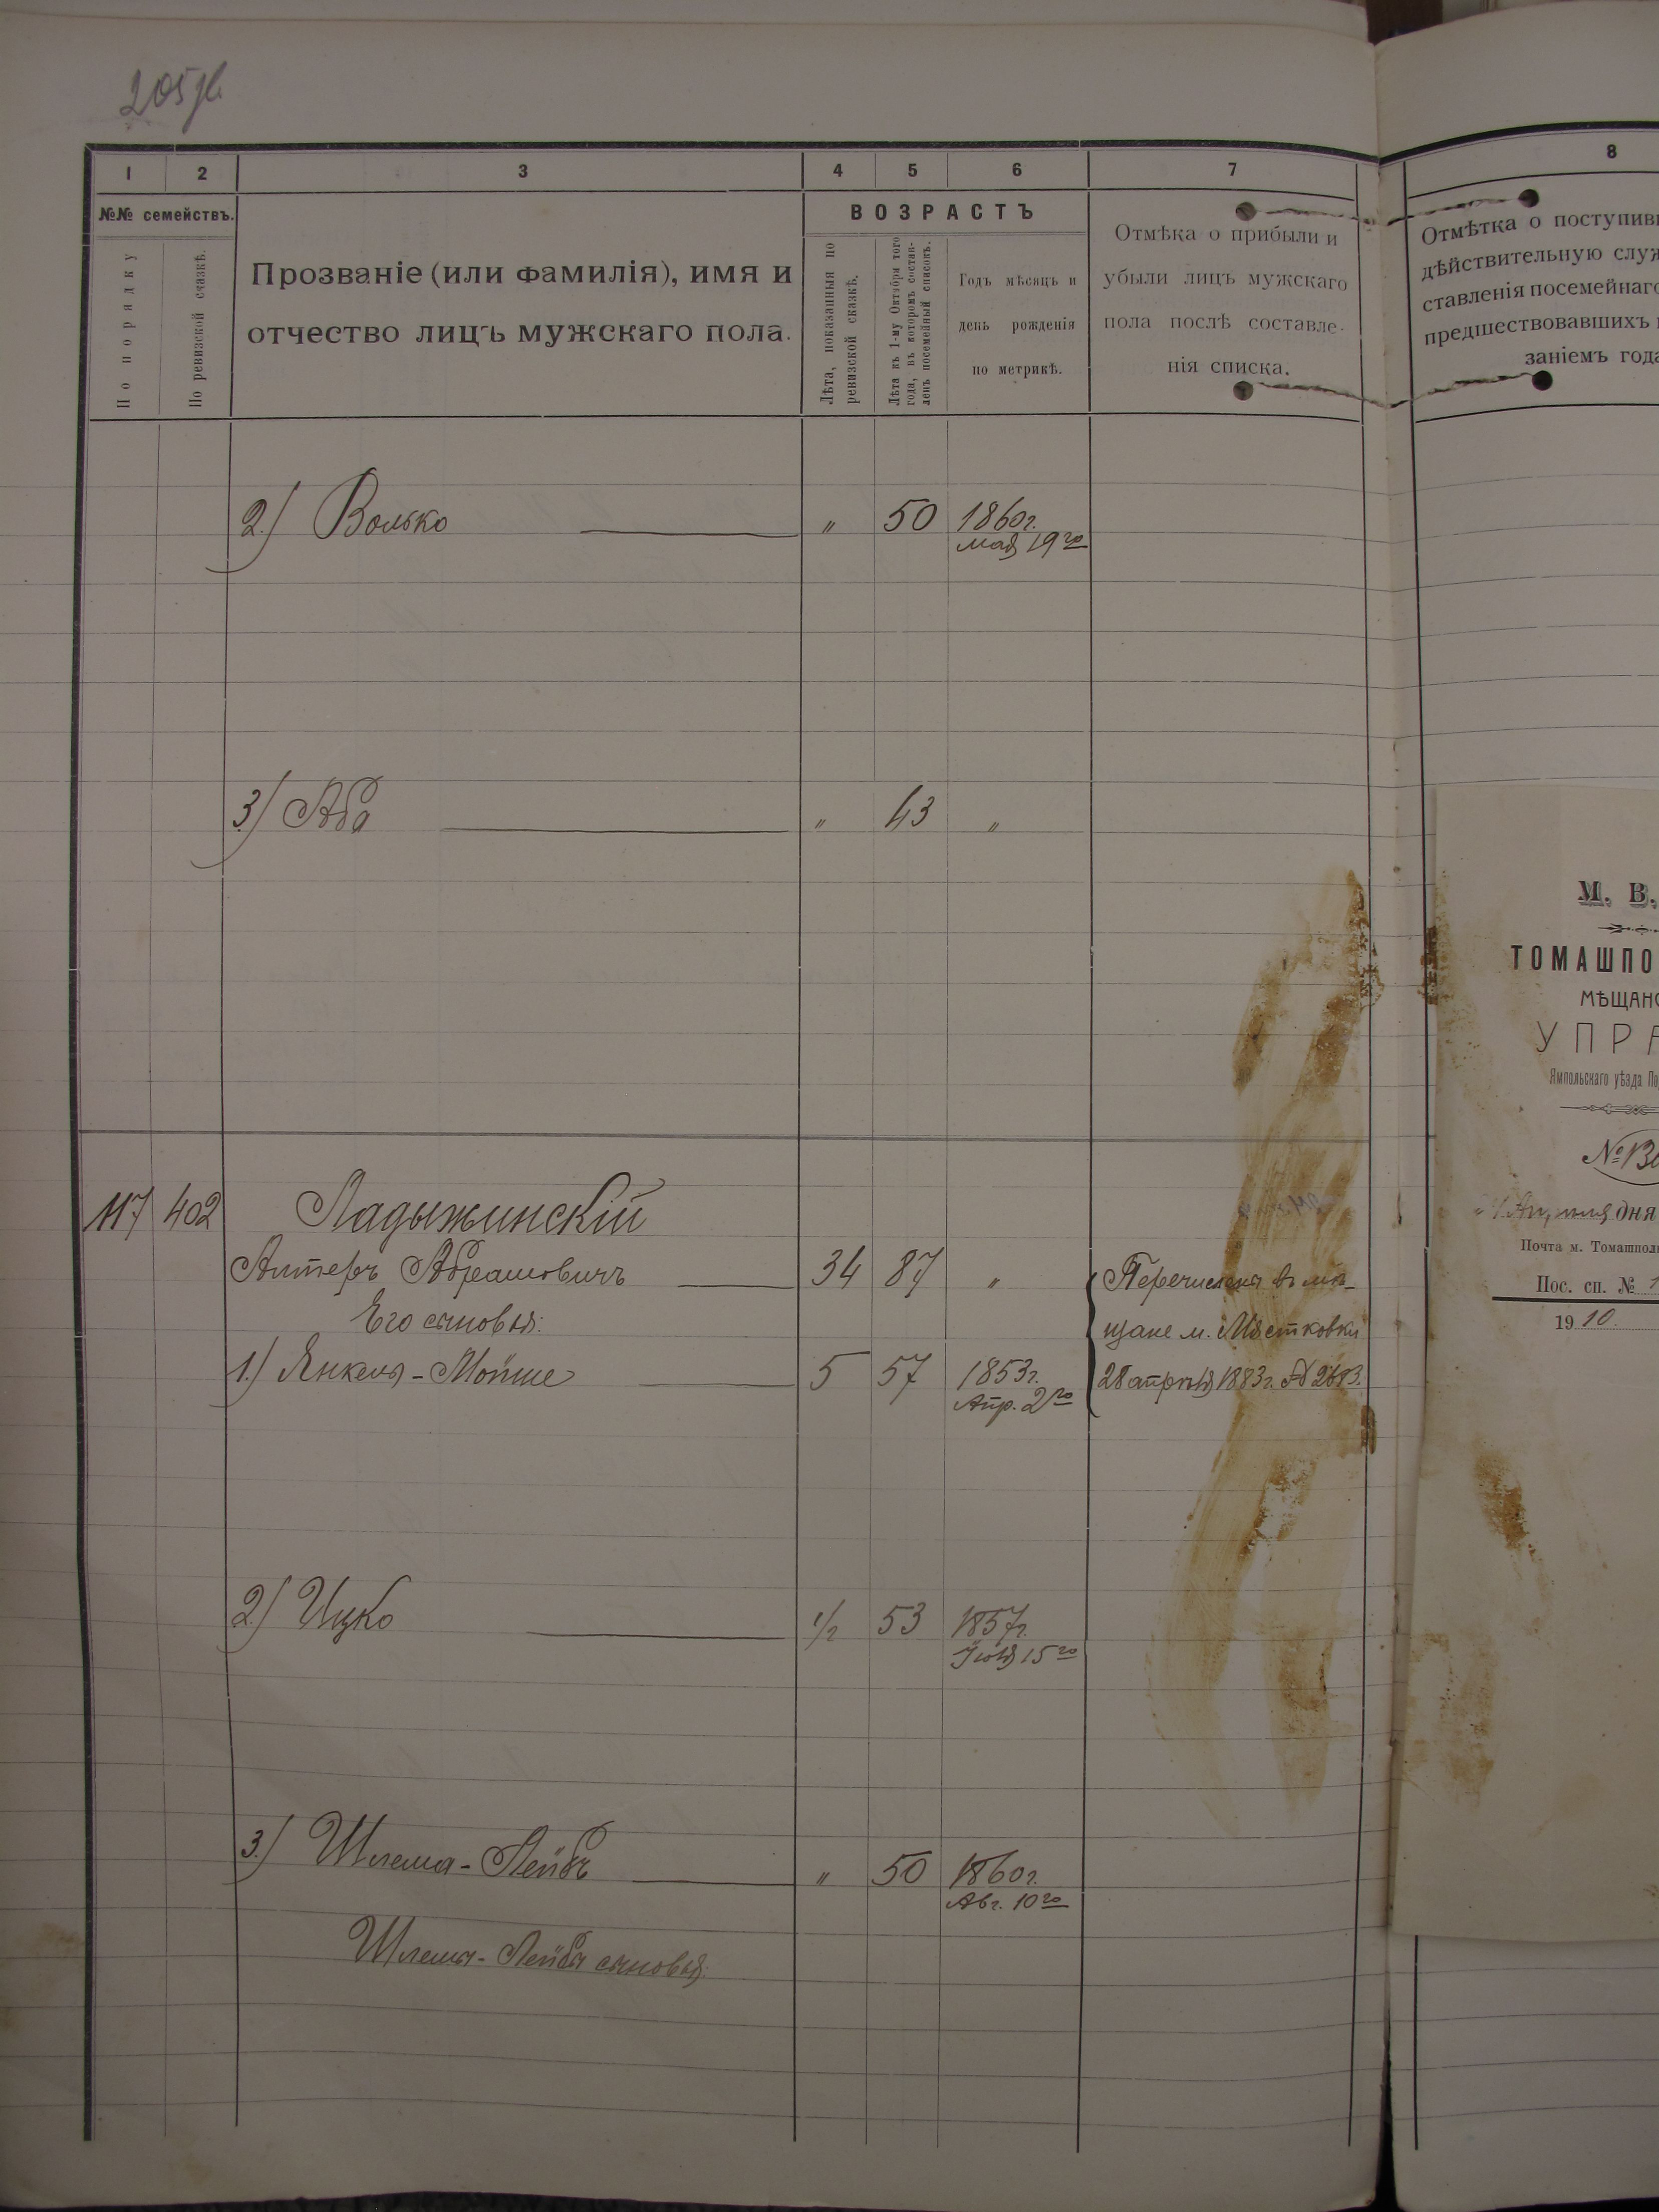 205 об.
1 2 3 4 5 6 7
№№ семействъ.
По порядку
По ревизской сказкѣ.
Прозваніе (или фамилія), имя и
отчество лицъ мужскаго пола.
ВОЗРАСТЪ
Лѣта, показанныя по
ревизской сказкѣ.
Лѣта къ 1-му Октября того
года, въ которомъ состав-
ленъ посемейный списокъ.
Годъ мѣсяцъ и
день рожденія
по метрикѣ.
Отмѣка о прибыли и
убыли лицъ мужскаго
пола послѣ составле-
нія списка.
2.) Волько " 50 1860г.
мая 19го
3.) Аба " 43 "
117 402 Ладыжинскій
Алтеръ Абрамовичъ 34 87 " Перечислены въ мѣ-
Его сыновья: щане м. Мястковки
1.) Янкель-Мойше 5 57 1853г. 28 апрѣля 1883г. №
Апр. 2го
2.) Ицко 1/2 53 1857г.
Іюля 15го
3.) Шлема-Лейбъ " 50 1860г.
Авг. 10го
Шлема-Лейба сыновья:
8
Отмѣтка о поступивш
дѣйствительную служ
ставленія посемейнаго
предшествовавшихъ
заніемъ года
М. В.
ТОМАШПО
МѢЩАНС
УПРА
Ямпольскаго уѣзда По
№
Апрѣля дня
Почта м. Томашпол
Пос. сп. № 1
1910